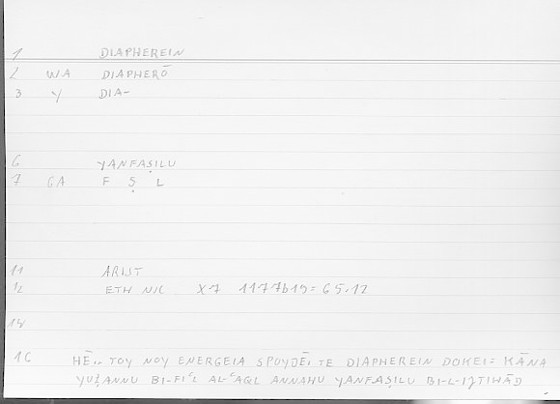 1 DIAPHEREIN
2 WA DIAPHERŌ
3 Y DIA-
6 YANFAṢILU
7 GA F Ṣ L
11 ARIST
12 ETH NIC X7 1177b19 = 65.12
14
16 HĒ.. TOY NOY ENERGEIA SPOYDĒI TE DIAPHEREIN DOKEI = KĀNA
YUẒANNU BI-FIʿL AL-ʿAQL ANNAHU YANFAṢILU BI-L-IǦTIHĀD